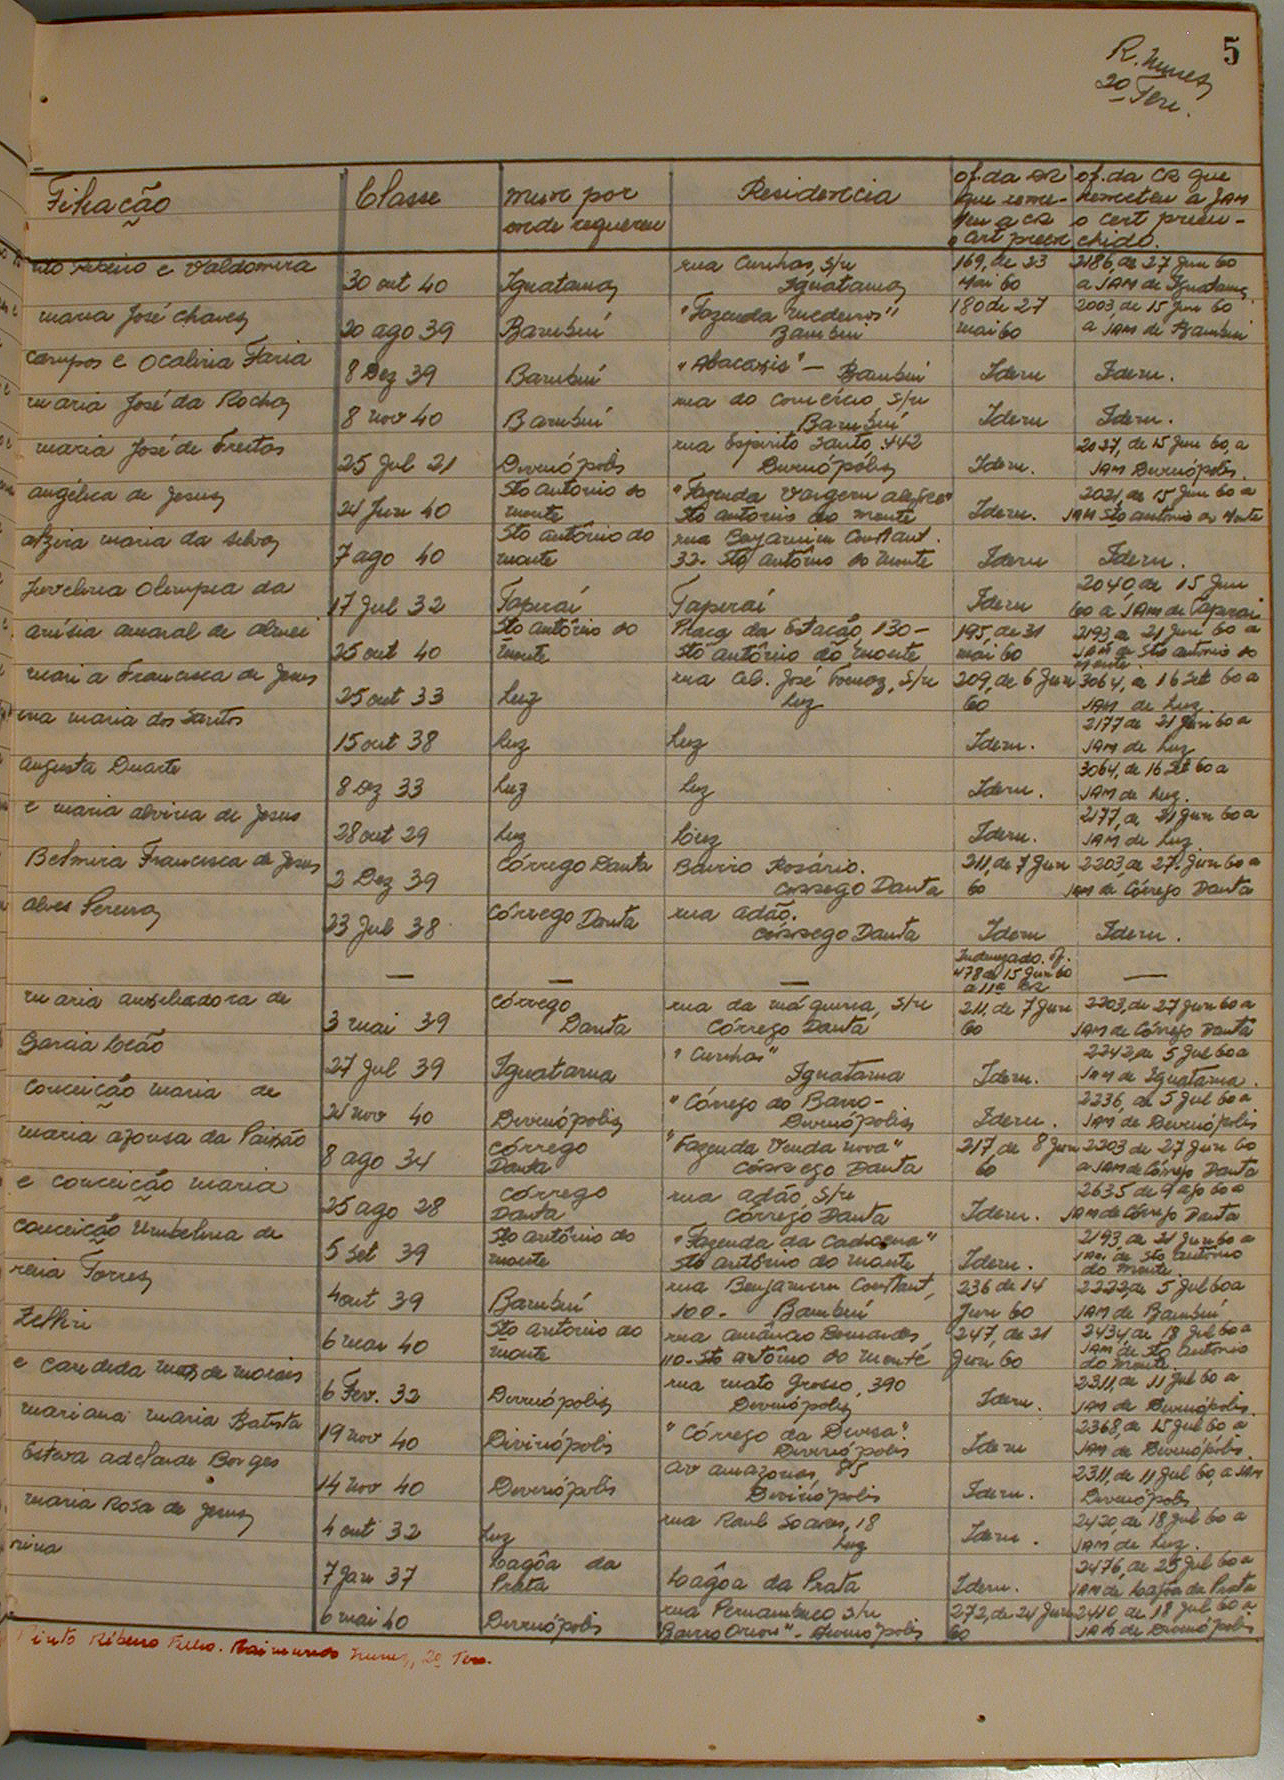 5
R. Nunes
2º Ten.
Filiação Classe mun por Residencia of. da DR of. da CR que
onde requereu que reme- remeteu a JAM
teu a CR o cert preen-
o cert preen chido.
ito Ribeiro e Valdomira 30 out 40 Iguatama rua Cunhas, s/n 169, de 23 2186, de 27 Jun 60
Iguatama Mai 60 a JAM de Iguatama
maria José chaves 20 ago 39 Bambuí "Fazenda medeiros" 180 de 27 2003, de 15 Jun 60
Bambui mai 60 a JAM de Bambui
campos e Ocalina Faria 8 Dez 39 Bambuí "Abacaxis" - Bambui Idem Idem.
maria José da Rocha 8 nov 40 Bambuí rua do comércio s/n Idem Idem.
Bambuí
maria José de Freitas 25 Jul 21 Divinópolis rua Espirito Santo, 442 Idem. 2027, de 15 Jun 60, a
Divinópolis JAM Divinópolis.
angélica de Jesus 24 Jun 40 Sto antonio do "Fazenda Vargem alegre" Idem. 2021, de 15 Jun 60 a
monte Sto antonio do monte JAM Sto antônio do Monte
alzira maria da silva 7 ago 40 Sto antônio do rua Benjamim Constant. Idem Idem.
monte 32- Sto antônio do monte
Juvelina Olimpia da 17 Jul 32 Taperaí Taperaí Idem 2040, de 15 Jun
60 a JAM de Taperaí
anísia amaral de almei 25 out 40 Sto antônio do Praça da Estação, 130- 195, de 31 2193, a 21 Jun 60 a
monte Sto antônio do monte mai 60 JAM de Sto antonio do
monte.
maria Francisca de Jesus 25 out 33 Luz rua Cel. José Tomaz, s/n 209, de 6 Jun 3064, a 16 Set 60 a
Luz 60 JAM de Luz.
ina maria dos Santos 15 out 38 Luz Luz Idem. 2177 de 21 Jun 60 a
JAM de Luz
augusta Duarte 8 Dez 33 Luz Luz Idem. 3064, de 16 Set 60 a
JAM de Luz.
e maria alvina de Jesus 28 out 29 Luz Luz Idem. 2177, de 21 Jun 60 a
JAM de Luz.
Belmira Francisca de Jesus 2 Dez 39 Córrego Danta Bairro Rosário. 211, de 7 Jun 2203, de 27 Jun 60 a
Córrego Danta 60 JAM de Córrego Danta
alves Pereira 23 Jul 38 Córrego Danta rua adão. Idem Idem.
Córrego Danta
— — — Indenizado. of. —
478 de 15 Jun 60
a 11ª CR
maria auxiliadora de 3 mai 39 Córrego rua da máquina, s/n 211, de 7 Jun 2203, de 27 Jun 60 a
Danta Córrego Danta 60 JAM de Córrego Danta
Garcia Leão 27 Jul 39 Iguatama "Cunhas" Idem. 2242, de 5 Jul 60 a
Iguatama JAM de Iguatama.
Conceição maria de 21 nov 40 Divinópolis "Córrego do Barro- Idem. 2236, de 5 Jul 60 a
Divinópolis JAM de Divinópolis
maria afonsa da Paixão 8 ago 34 Córrego "Fazenda Venda nova" 217, de 8 Jun 2203 de 27 Jun 60
Danta Córrego Danta 60 a JAM de Córrego Danta
e conceição maria 25 ago 28 Córrego rua adão, s/n Idem. 2635 de 9 ago 60 a
Danta Córrego Danta JAM de Córrego Danta
conceição Umbelina de 5 Set 39 Sto antônio do "Fazenda da Cachoeira" Idem. 2193, de 21 Jun 60 a
monte Sto antônio do monte JAM. de Sto antônio
do monte.
reira Torres 4 out 39 Bambuí rua Benjamim Constant, 236 de 14 2222, de 5 Jul 60 a
100- Bambuí Jun 60 JAM de Bambuí
Zeffiri 6 mai 40 Sto antonio do rua amâncio Bernardes 247, de 21 2434, de 18 Jul 60 a
monte 110-Sto antônio do monte Jun 60 JAM de Sto antonio
do monte.
e candida mas de morais 6 Fev. 32 Divinópolis rua mato Grosso, 390 Idem. 2311, de 11 Jul 60 a
Divinópolis JAM de Divinópolis.
mariana maria Batista 19 nov 40 Divinópolis "Córrego da Divisa". Idem 2368, de 15 Jul 60 a
Divinópolis JAM de Divinópolis.
Esteva adelaide Borges 14 nov 40 Divinópolis av amazonas, 85 Idem. 2311, de 11 Jul 60, a JAM
Divinópolis Divinópolis
maria Rosa de Jesus 4 out 32 Luz rua Raul Soares, 18 Idem. 2420, de 18 Jul 60 a
Luz JAM, de Luz.
nina 7 Jan 37 Lagôa da Lagôa da Prata Idem. 2476, de 25 Jul 60 a
Prata JAM de Lagôa da Prata
6 mai 40 Divinópolis rua Pernambuco s/n 272, de 24 Jun 2410 de 18 Jul 60 a
Bairro Orion"- Divinópolis 60 JAM de Divinópolis
Pinto Ribeiro Filho. Raimundo Nunes, 2º Ten.